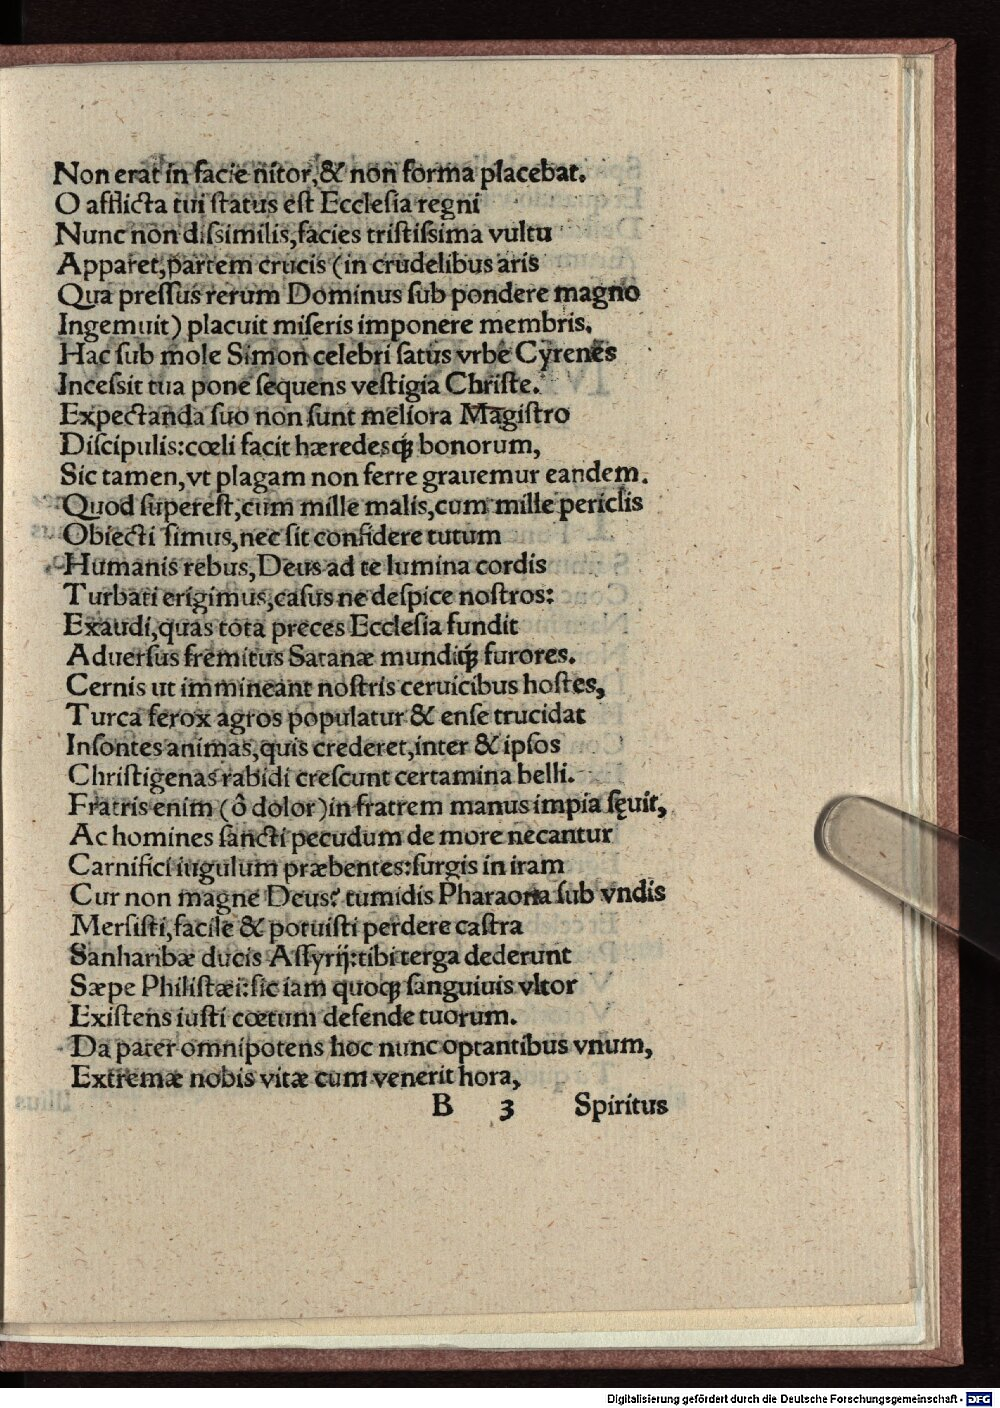 Non erat in facie nitor,& non forma placebat.
O afflicta tui ſtatus eſt Eccleſia regni
Nunc non diſsimilis,facies triſtiſsima vultu
Apparet,partem crucis (in crudelibus aris
Qua preſſus rerum Dominus ſub pondere magno
Ingemuit) placuit miſeris imponere membris.
Hac ſub mole Simon celebri ſatus vrbe Cyrenes
Inceſsit tua pone ſequens veſtigia Chriſte.
Expectanda ſuo non ſunt meliora Magiſtro
Diſcipulis:cœli facit hæredesqꝫ bonorum,
Sic tamen,vt plagam non ferre grauemur eandem.
Quod ſupereſt,cum mille malis,cum mille periclis
Obiecti ſimus,nec ſit confidere tutum
Humanis rebus,Deus ad te lumina cordis
Turbati erigimus,caſus ne deſpice noſtros:
Exaudi,quas tota preces Eccleſia fundit
Aduerſus fremitus Satanæ mundiqꝫ furores.
Cernis ut immineant noſtris ceruicibus hoſtes,
Turca ferox agros populatur & enſe trucidat
Inſontes animas,quis crederet,inter & ipſos
Chriſtigenas rabidi creſcunt certamina belli.
Fratris enim (ô dolor)in fratrem manus impia ſęuit,
Ac homines ſancti pecudum de more necantur
Carnifici iugulum præbentes:ſurgis in iram
Cur non magne Deus? tumidis Pharaona ſub vndis
Merſiſti,facile & potuiſti perdere caſtra
Sanharibæ ducis Aſſyrij:tibi terga dederunt
Sæpe Philiſtæi:ſic iam quoqꝫ ſanguiuis vltor
Exiſtens iuſti cœtum defende tuorum.
Da pater omnipotens hoc nunc optantibus vnum,
Extremæ nobis vitæ cum venerit hora,
B 3 Spiritus
Digitalisierung gefördert durch die Deutsche Forschungsgemeinschaft - DFG